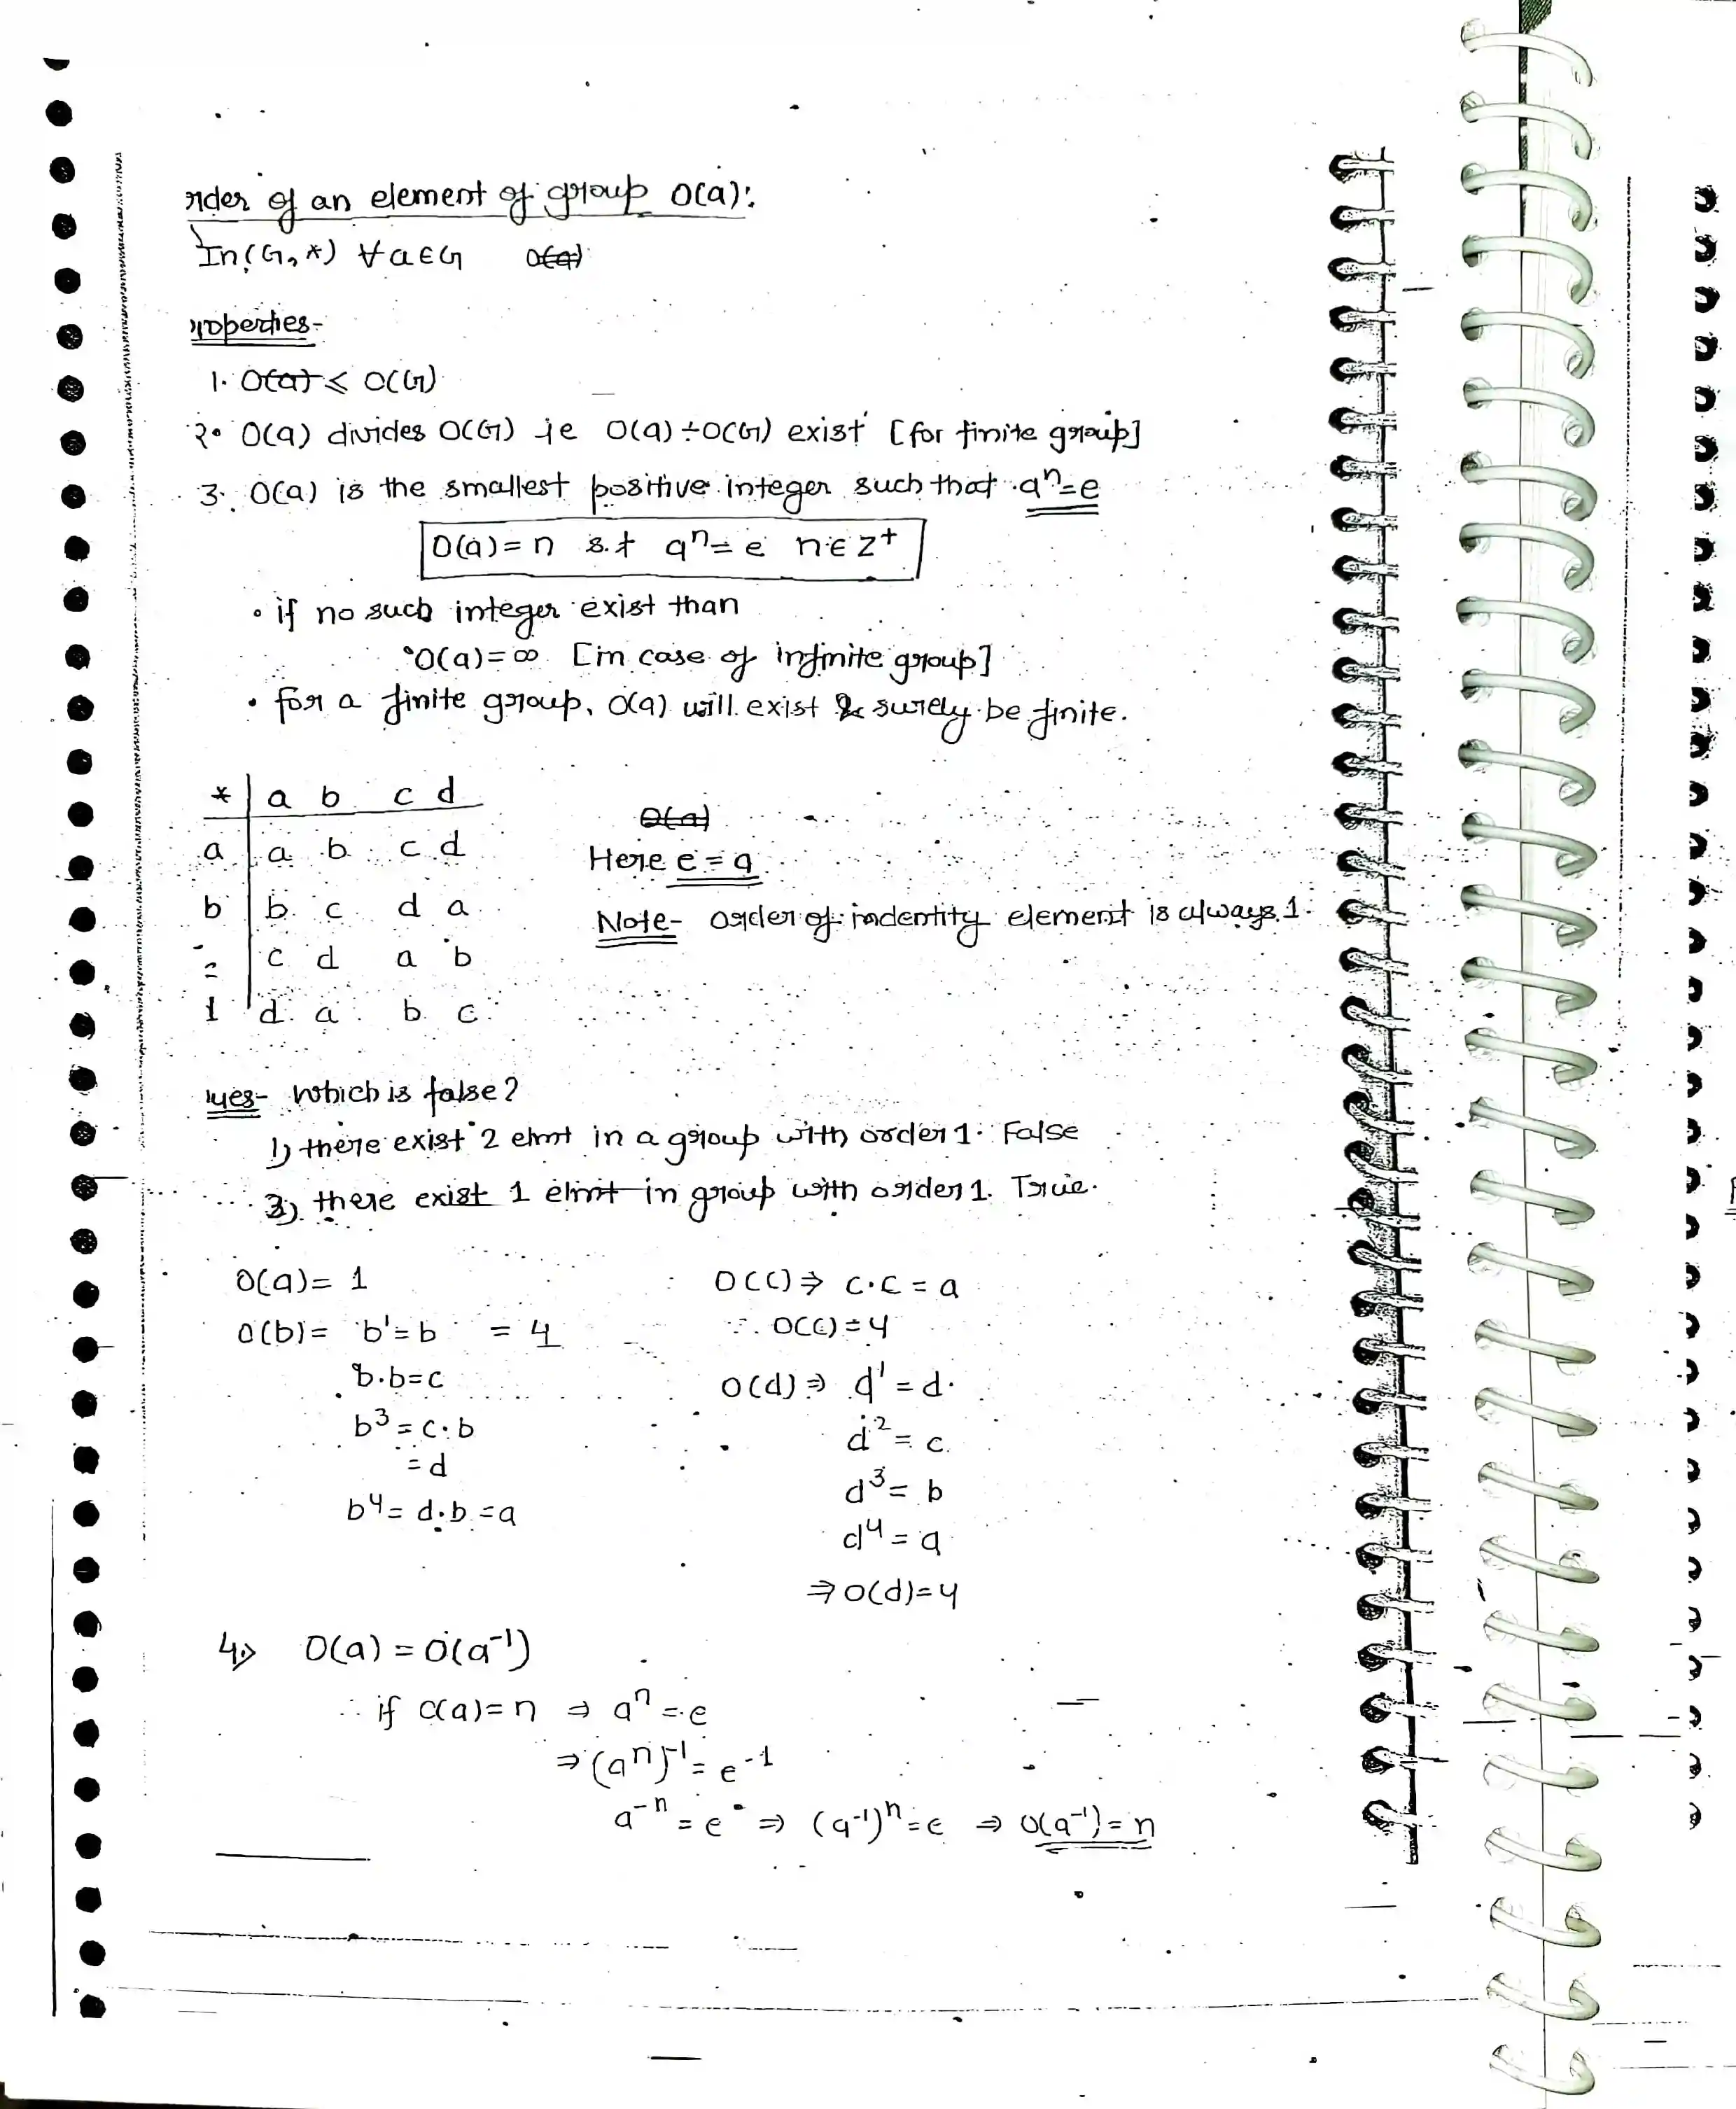 rder of an element of group O(a):
In (G, *) ∀ a ∈ G O(a)
roperties-
1. O(a) ≤ O(G)
2. O(a) divides O(G) ie O(a) ÷ O(G) exist [for finite group]
3. O(a) is the smallest positive integer such that aⁿ = e
O(a) = n s.t aⁿ = e n ∈ Z⁺
• if no such integer exist than
O(a) = ∞ [in case of infinite group]
• for a finite group, O(a) will exist & surely be finite.
* a b c d
a a b c d
b b c d a
c d a b
d a b c
O(a)
Here e = a
Note- order of indentity element is always 1.
ues- which is false?
1) there exist 2 elmt in a group with order 1. False
2) there exist 1 elmt in group with order 1. True.
O(a) = 1
O(b) = b¹ = b = 4
b·b = c
b³ = c·b
= d
b⁴ = d·b = a
O(c) ⇒ c·c = a
∴ O(c) = 4
O(d) ⇒ d¹ = d.
d² = c
d³ = b
d⁴ = a
⇒ O(d) = 4
4.) O(a) = O(a⁻¹)
∴ if O(a) = n ⇒ aⁿ = e
⇒ (aⁿ)⁻¹ = e⁻¹
a⁻ⁿ = e ⇒ (a⁻¹)ⁿ = e ⇒ O(a⁻¹) = n